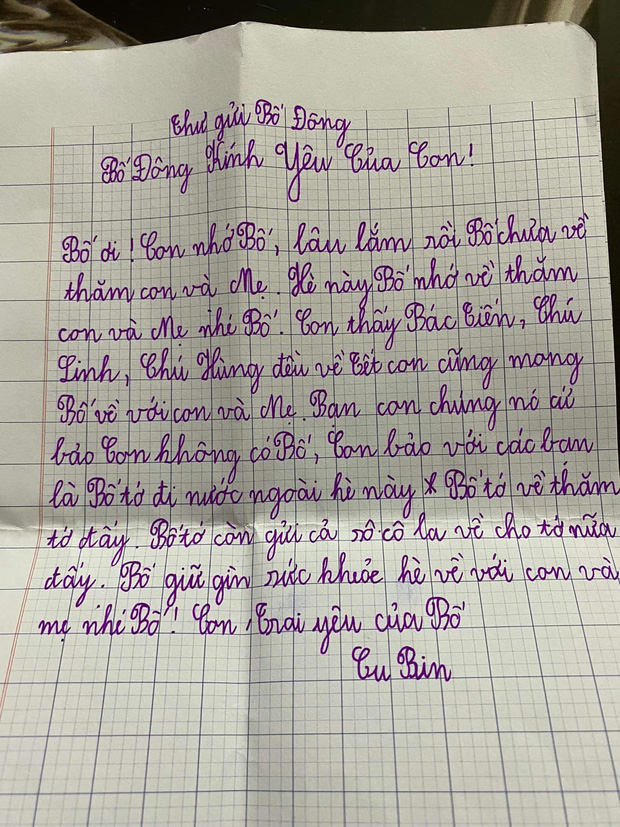 Thư gửi Bố Đông
Bố Đông Kính Yêu Của Con!
Bố ơi! Con nhớ Bố, lâu lắm rồi Bố chưa về
thăm con và Mẹ. Hè này Bố nhớ về thăm
con và Mẹ nhé Bố. Con thấy Bác Tiến, Chú
Linh, Chú Hùng đều về Tết con cũng mong
Bố về với con và Mẹ. Bạn con chúng nó cứ
bảo Con không có Bố, Con bảo với các bạn
là Bố tớ đi nước ngoài hè này * Bố tớ về thăm
tớ đấy. Bố tớ còn gửi cả sô cô la về cho tớ nữa
đấy. Bố giữ gìn sức khỏe hè về với con và
mẹ nhé Bố! Con Trai yêu của Bố
Cu Bin